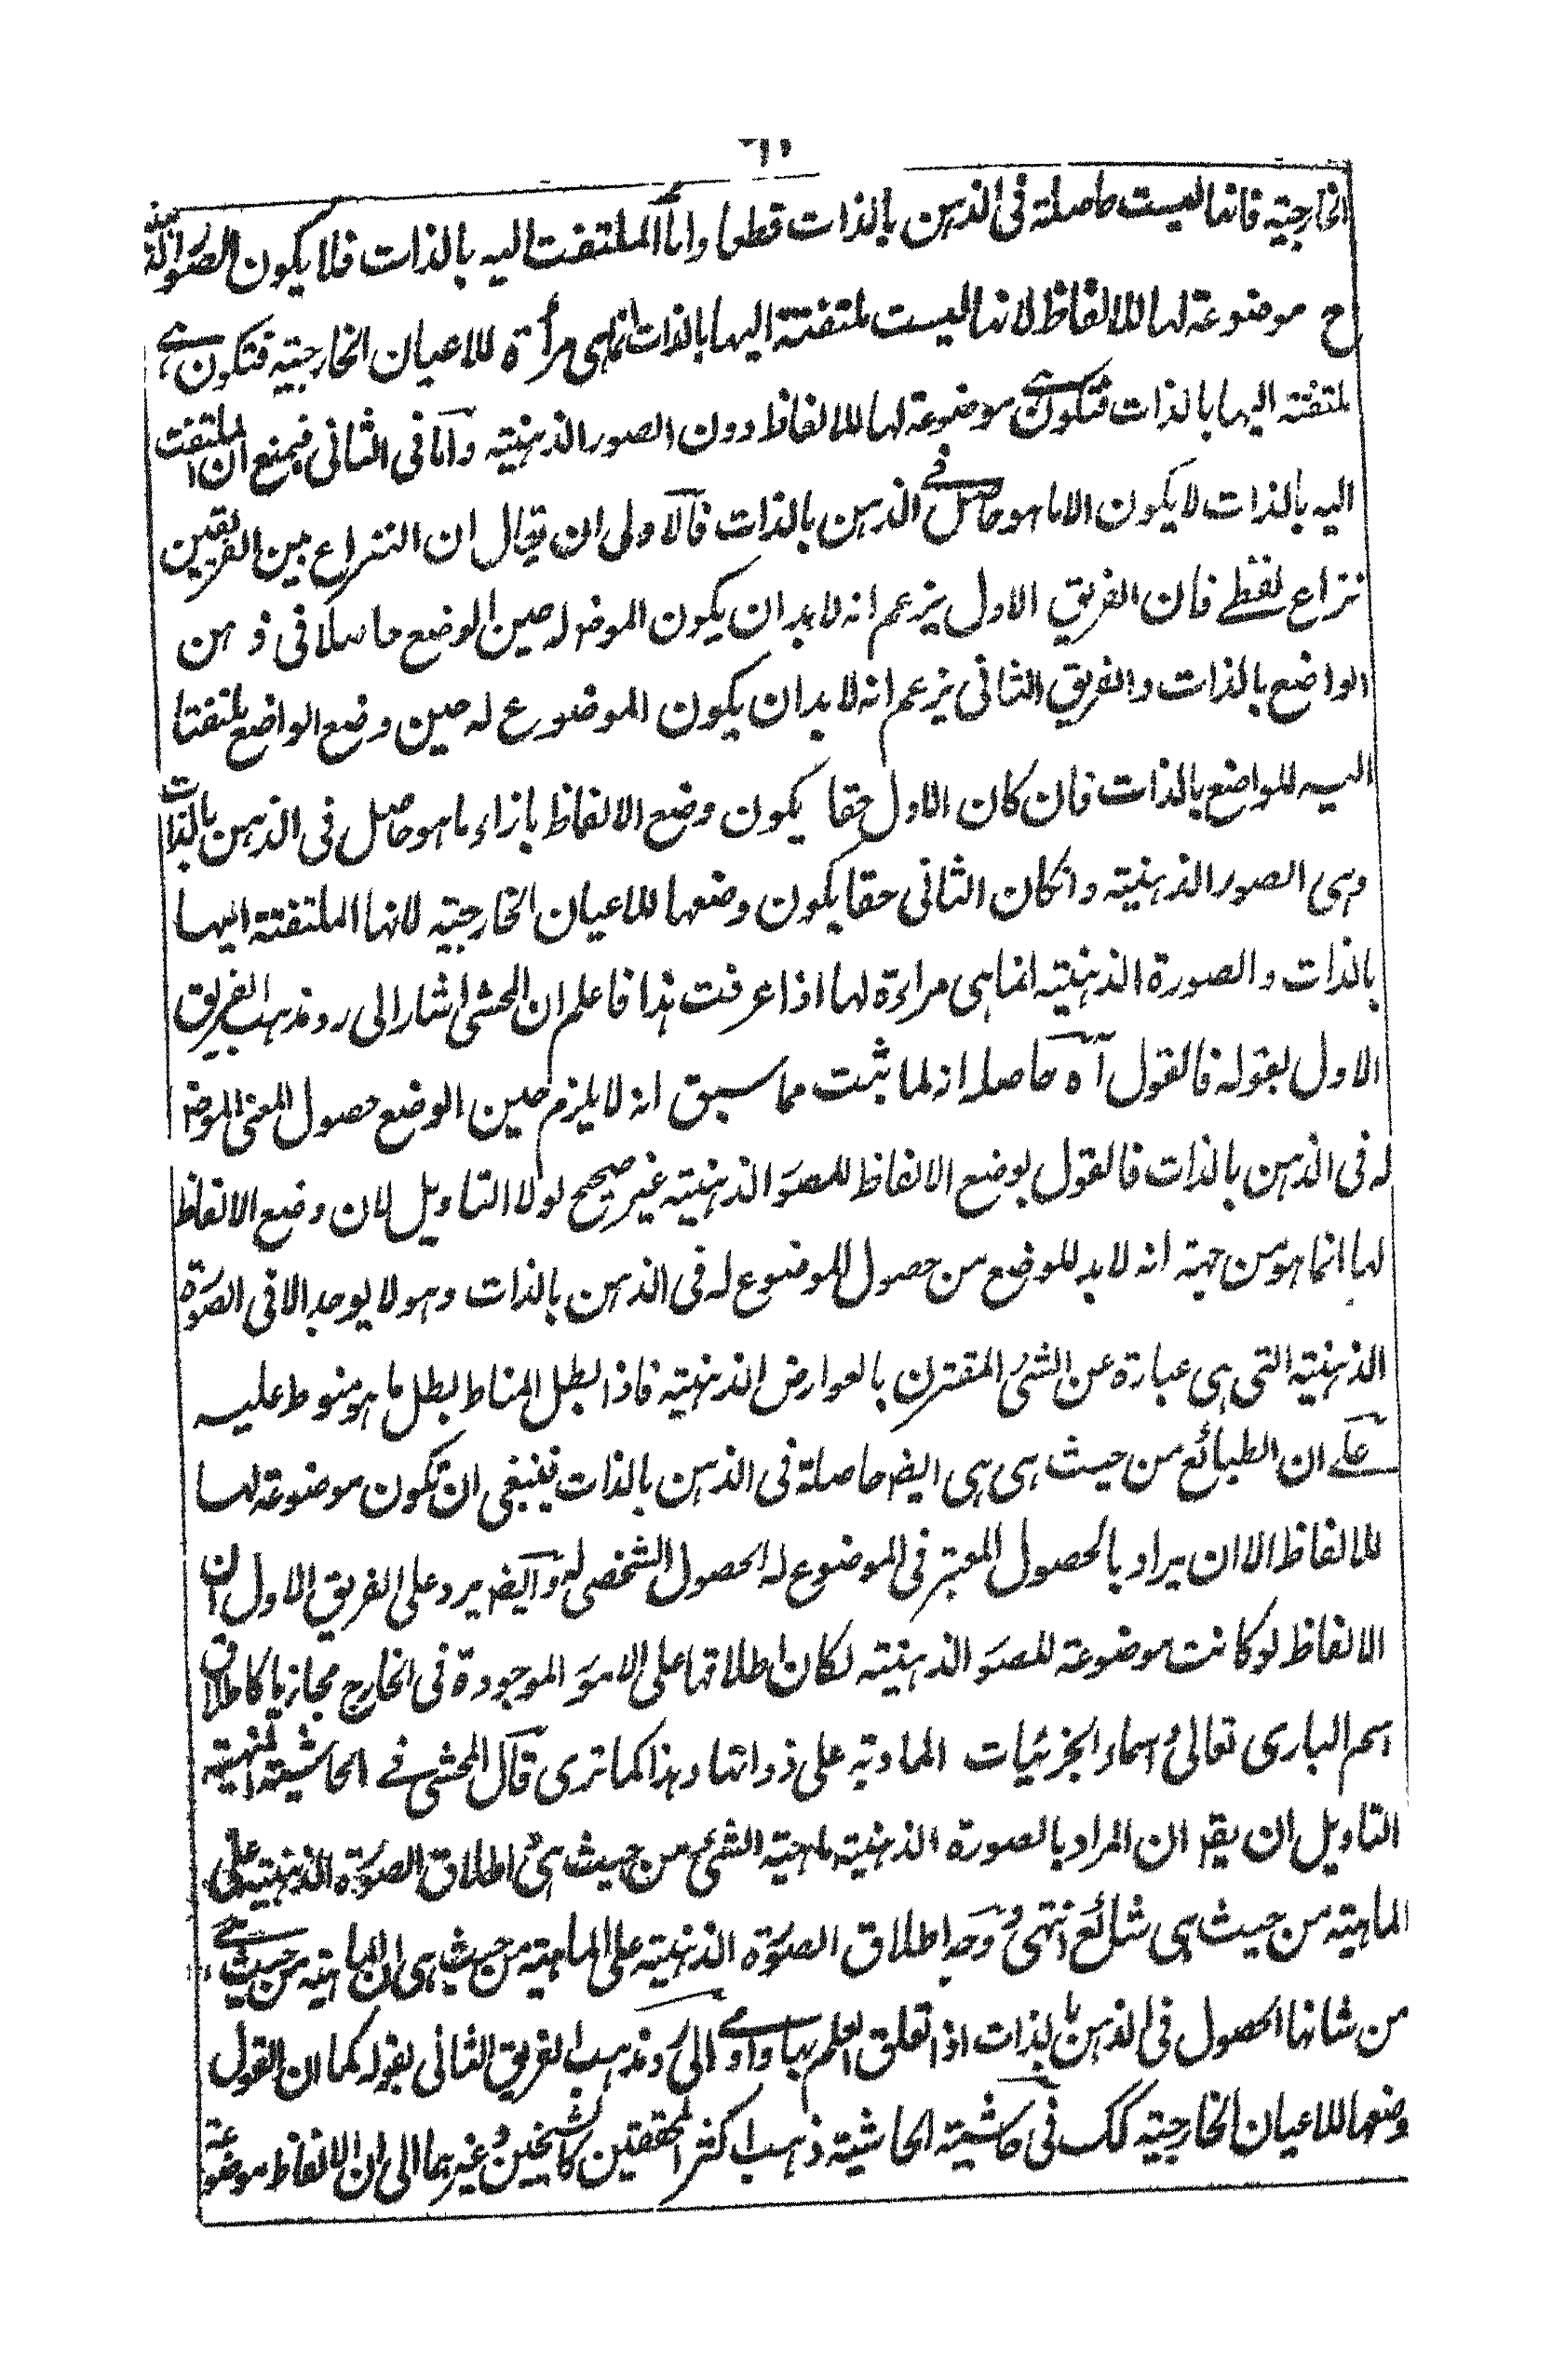 الخارجية فانها ليست حاصلة فى الذهن بالذات قطعا واما الملتفت اليه بالذات فلا يكون الصور الذهنية
ح موضوعة لها للالفاظ لانها ليست ملتفتة اليها بالذات انما هى مرأة للاعيان الخارجية فتكون هى
ملتفتة اليها بالذات فتكون هى موضوعة لها للالفاظ دون الصور الذهنية واما فى الثانى فبمنع ان الملتفت
اليه بالذات لا يكون الا ما هو حاصل فى الذهن بالذات فالاولى ان يقال ان النزاع بين الفريقين
نزاع لفظى فان الفريق الاول يزعم انه لا بد ان يكون الموضو له حين الوضع حاصلا فى ذهن
الواضع بالذات والفريق الثانى يزعم انه لا بد ان يكون الموضوع له حين وضع الواضع ملتفتا
اليه للواضع بالذات فان كان الاول حقا يكون وضع الالفاظ بازاء ما هو حاصل فى الذهن بالذات
وهى الصور الذهنية وانكان الثانى حقا يكون وضعها للاعيان الخارجية لانها الملتفتة اليها
بالذات والصورة الذهنية انما هى مراءة لها اذا عرفت هذا فاعلم ان المحشى اشار الى رد مذهب الفريق
الاول بقوله فالقول آه حاصله انه لما ثبت مما سبق انه لا يلزم حين الوضع حصول المعنى الموضو
له فى الذهن بالذات فالقول بوضع الالفاظ للصور الذهنية غير صحيح لولا التاويل لان وضع الالفاظ
لها انما هو من جهة انه لا بد للوضع من حصول الموضوع له فى الذهن بالذات وهو لا يوجد الا فى الصورة
الذهنية التى هى عبارة عن الشئ المقترن بالعوارض الذهنية فاذا بطل المناط بطل ما هو منوط عليه
على ان الطبائع من حيث هى هى ايضا حاصلة فى الذهن بالذات فينبغى ان تكون موضوعة لها
للالفاظ الا ان يراد بالحصول المعتبر فى الموضوع له الحصول الشخصى له وايضا يرد على الفريق الاول ان
الالفاظ لو كانت موضوعة للصور الذهنية لكان اطلاقها على الامور الموجودة فى الخارج مجازيا كاطلاق
اسم البارى تعالى واسماء الجزئيات المادية على ذواتها وهذا كما ترى قال المحشى فى الحاشية المنهية
التاويل ان يقر ان المراد بالصورة الذهنية ماهية الشئ من حيث هى واطلاق الصورة الذهنية على
الماهية من حيث هى شائع انتهى ووجه اطلاق الصورة الذهنية على الماهية من حيث هى ان الماهية من حيث هى
من شانها الحصول فى الذهن بالذات اذا تعلق العلم بها واومى الى رد مذهب الفريق الثانى بقوله كما ان القول
وضعها للاعيان الخارجية كك فى حاشية الحاشية ذهب اكثر المحققين كالشيخين وغيرهما الى ان الالفاظ موضوعة